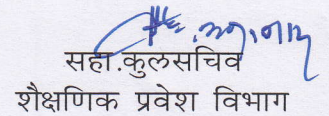 सहा.कुलसचिव
शैक्षणिक प्रवेश विभाग